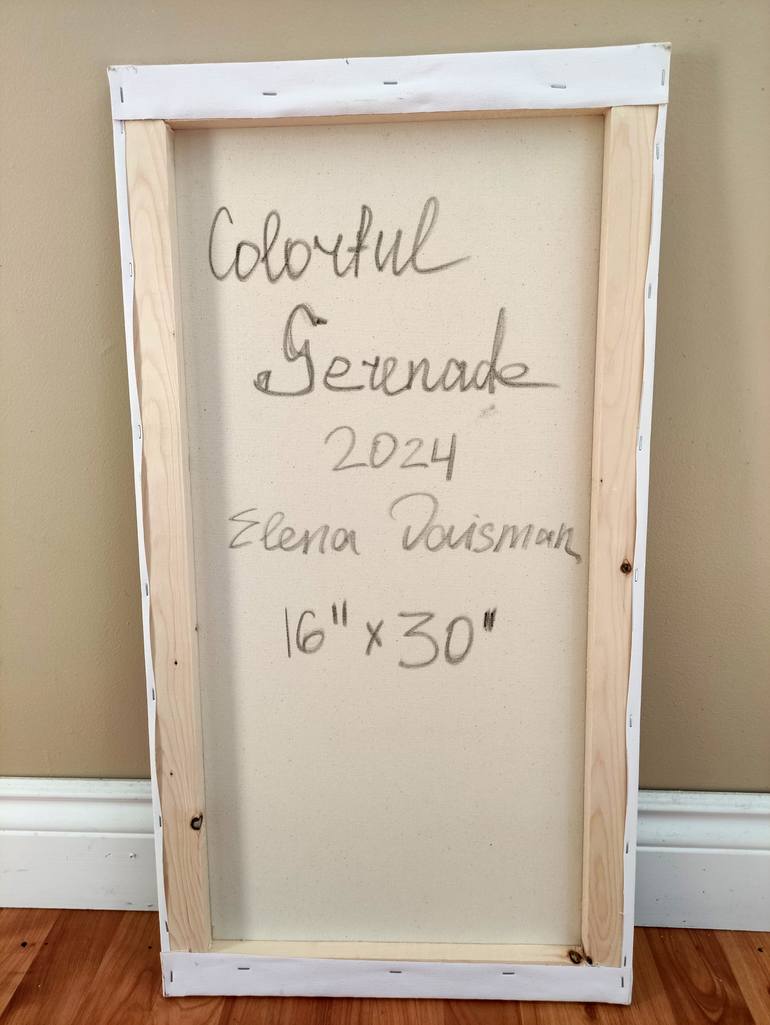 Colorful
Serenade
2024
Elena Daisman
16" x 30"